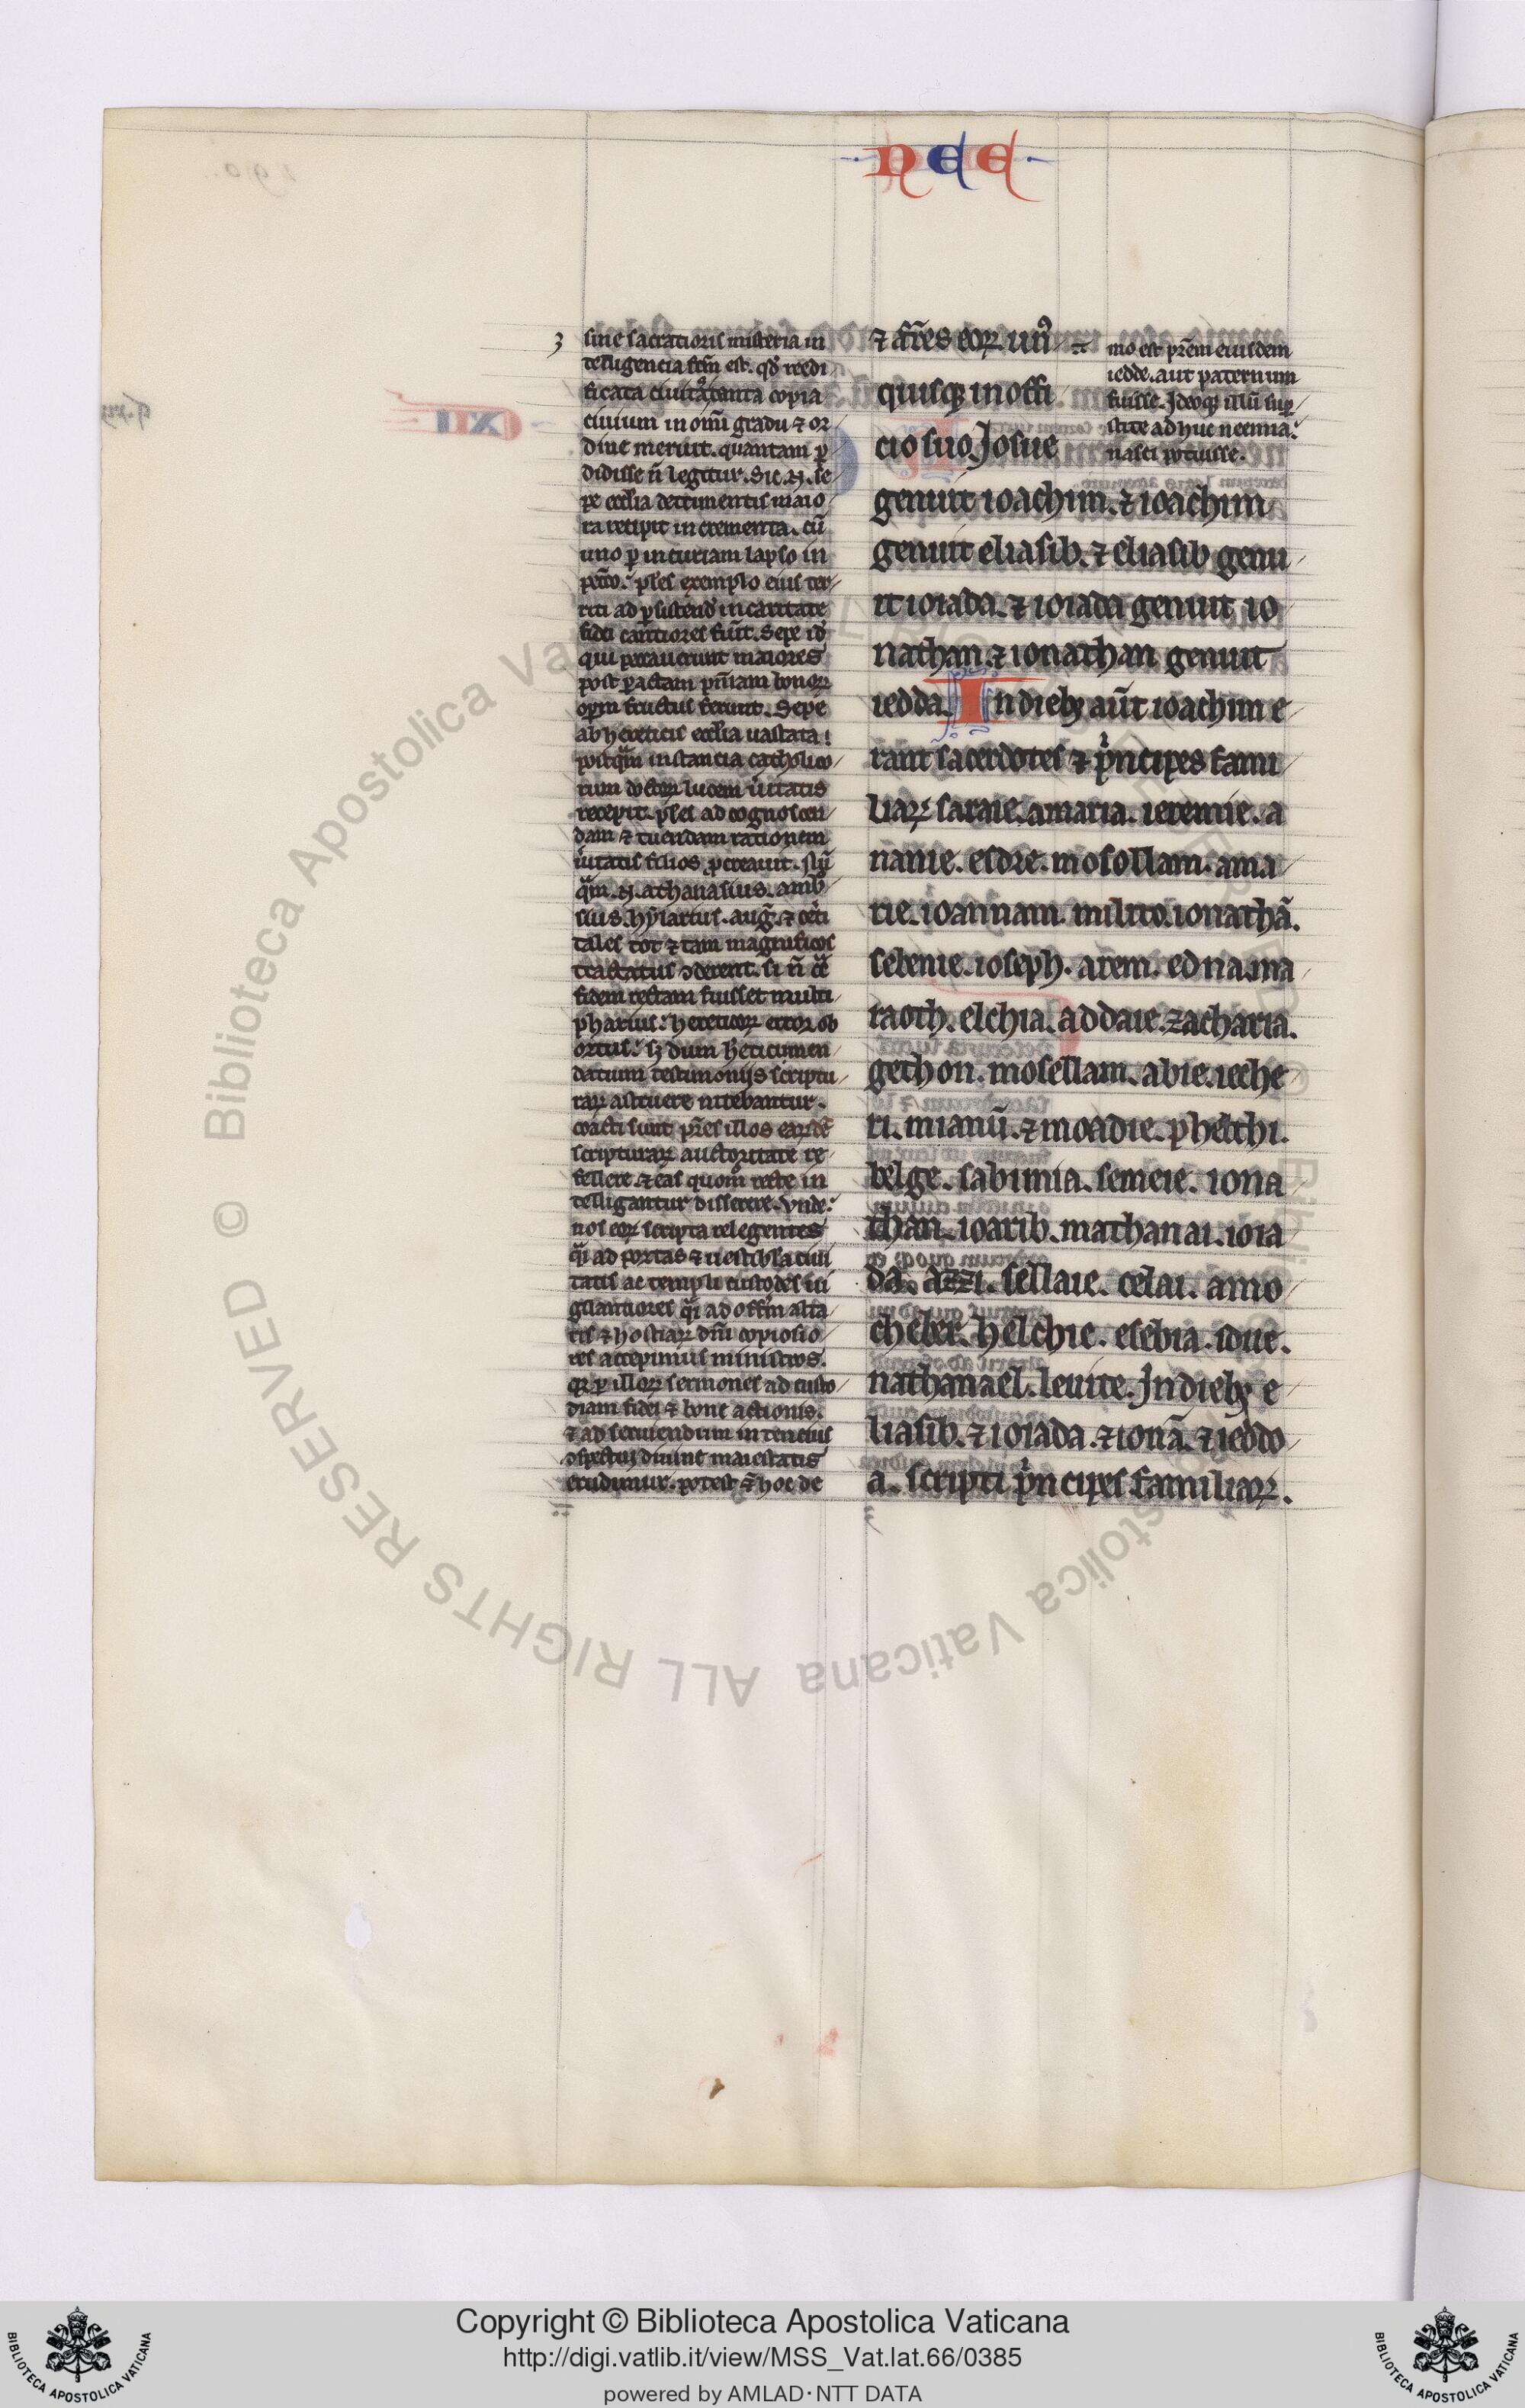 NEE
siue sacratioris misteria in
telligencia fcm̄ est. qd̓ reedi
ficata ciuitas tanta copia
ciuium in om̄i gradu ⁊ or
dine meruit. quantam ꝑ
didisse n̄ legitur. Sic .n. se
pe eccl̓ia detrimentis maio
ra recipit incrementa. cū
uno ꝑ incuriam lapso in
pctō. plures exemplo eius ter
riti ad ꝑsistend̓ in caritate
fidei cautiores fiūt. Sepe id̓
qui peccauerunt maiores
post ꝑactam pn̄iam bonoꝝ
oꝑm fructus ferunt. Sepe
ab hereticis eccl̓ia uastata
postq̄m instancia catholico
rum doctoꝝ lucem ūitatis
recepit. plures ad cognoscen
dam ⁊ tuendam rationem
ūitatis filios ꝓcreauit.
.n. athanasius. ambro
sius. hylarius. aug̓. ⁊ cet̓i
tales tot ⁊ tam magnificos
tractatus ꝯderent. si n̄ cōtra
fidem rectam fuisset multi
pharius hereticoꝝ error ob
ortus. sꝫ dum heretici men
datium testimoniis scriptu
raꝝ astruere nitebantur.
coacti sunt pr̄es illos earūdē
scripturaꝝ auctoritate re
fellere. ⁊ eas quom̄ recte in
telligantur disserere. Vnde
nos eoꝝ scripta relegentes
q̄i ad portas ⁊ uestibl̓a ciui
tatis ac templi custodes ui
gilantiores q̄i ad offm̄ alta
ris ⁊ hostiaꝝ dn̄i copiosio
res accepimus ministros.
qꝛ ꝑ illoꝝ sermones ad custo
diam fidei ⁊ bone actionis.
⁊ ad seruiendum in
ꝯspectu diuine maiestatis
erudimur. potest .n. hoc de
⁊ fr̄es eoꝝ un̓
quisqꝫ in offi
cio suo. Josue
genuit ioachim. ⁊ ioachim
genuit eliasib. ⁊ eliasib genu
it ioiada. ⁊ ioiada genuit io
nathan. ⁊ ionathan genuit
iedda. In diebꝫ aūt ioachim e
rant sacerdotes ⁊ pͥncipes fami
liaꝝ saraie. amaria. ieremie. a
nanie. esdre. mosollam. ama
rie. ioannam. milico. ionathā.
sebenie. ioseph. arem. edna. ma
raoth. elchia. addaie. zacharia.
gethon. mosellam. abie. ieche
ri. mianū. ⁊ moadie. phelthi.
belge. sabimia. semeie. iona
than. ioarib. mathanai. ioia
da. azzi. sellaie. celai. amo
cheber. helchie. esebia. idue.
nathanael. leuite. In diebꝫ e
liasib. ⁊ ioiada. ⁊ ionā. ⁊ ieddo
a. scripti pͥncipes familiaꝝ.
mo est pr̄em eiusdem
iedde. aut paternum
fuisse. Ideoqꝫ illū suꝑ
stite adhuc neemia
nasci potuisse.
XII
Copyright © Biblioteca Apostolica Vaticana
http://digi.vatlib.it/view/MSS_Vat.lat.66/0385
powered by AMLAD·NTT DATA
BIBLIOTECA APOSTOLICA VATICANA
BIBLIOTECA APOSTOLICA VATICANA
© Biblioteca Apostolica Vaticana ALL RIGHTS RESERVED